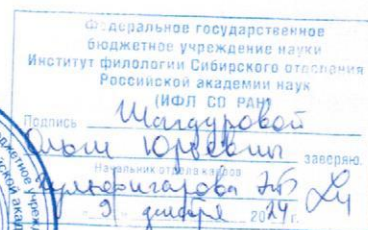 Федеральное государственное
бюджетное учреждение науки
Институт филологии Сибирского отделения
Российской академии наук
(ИФЛ СО РАН)
Подпись Шагдуровой
Ольги Юрьевны заверяю.
Начальник отдела кадров
9 декабря 2024 г.